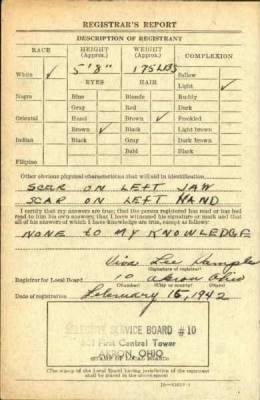 REGISTRAR'S REPORT
DESCRIPTION OF REGISTRANT
RACE HEIGHT (Approx.) WEIGHT (Approx.) COMPLEXION
White ✓ 5' 8" 175 LBS Sallow
EYES HAIR Light ✓
Negro Blue Blonde Ruddy
Gray Red Dark
Oriental Hazel Brown ✓ Freckled
Brown ✓ Black Light brown
Indian Black Gray Dark brown
Bald Black
Filipino
Other obvious physical characteristics that will aid in identification
SCAR ON LEFT JAW
SCAR ON LEFT HAND
I certify that my answers are true; that the person registered has read or has had
read to him his own answers; that I have witnessed his signature or mark and that
all of his answers of which I have knowledge are true, except as follows:
NONE to MY KNOWLEDGE
Lee
(Signature of registrar)
Registrar for Local Board 10 Akron Ohio
(Number) (City or county) (State)
Date of registration February 15, 1942
SELECTIVE SERVICE BOARD #10
First Central Tower
AKRON, OHIO
(STAMP OF LOCAL BOARD)
(The stamp of the Local Board having jurisdiction of the registrant
shall be placed in the above space.)